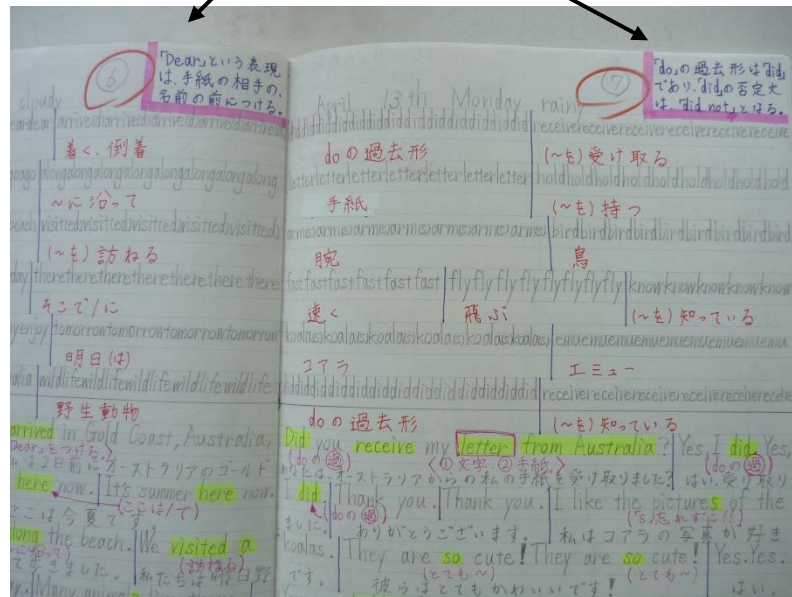 ⑥
「Dear」という表現
は、手紙の相手の、
名前の前につける。
cloudy
deardear arrive(d)arrive(d)arrive(d)arrive(d)arrive(d)
着く、到着
alongalongalongalongalongalongalong
〜に沿って
visit(ed)visit(ed)visit(ed)visit(ed)
(〜を)訪ねる
theretheretheretheretherethere
そこで/に
enjoy tomorrowtomorrowtomorrowtomorrow
明日(は)
wildlifewildlifewildlifewildlifewildlife
野生動物
arrived in Gold Coast, Australia,
Dearをつける。
は2日前にオーストラリアのゴールド
here now. It's summer here now.
(ここは/で)
ここは今夏です
along the beach. We visited a
に沿って (訪ねる)
て歩きました。 私たちは
Many
⑦
「do」の過去形は「did」
であり、「did」の否定文
は、「did not」となる。
April 13th Monday rainy
dididdiddiddiddiddiddiddiddiddiddid receivereceivereceivereceivereceivereceive
doの過去形 (〜を)受け取る
letterletterletterletterletterletterletter holdholdholdholdholdholdholdhold
手紙 (〜を)持つ
arm(s)arm(s)arm(s)arm(s)arm(s)arm(s) birdbirdbirdbirdbirdbirdbirdbird
腕 鳥
fastfastfastfastfastfast flyflyflyflyflyflyflyfly knowknowknowknowknowknow
速く 飛ぶ (〜を)知っている
koala(s)koala(s)koala(s)koala(s)koala(s) emuemuemuemuemuemuemuemu
コアラ エミュー
diddiddiddiddiddiddiddiddiddiddiddid receivereceivereceivereceivereceive
doの過去形 (〜を)知っている
Did you receive my letter from Australia? Yes, I did. Yes,
(doの過) 〈①文字、②手紙〉 (doの過)
あなたは、オーストラリアからの私の手紙を受け取りました? はい、受け取り
I did. Thank you. Thank you. I like the pictures of the
(doの過) (「s」忘れずに!!)
ました。 ありがとうございます。 私はコアラの写真が好き
koalas. They are so cute! They are so cute! Yes. Yes.
(とても〜) (とても〜)
です。 彼らはとてもかわいいです! はい。